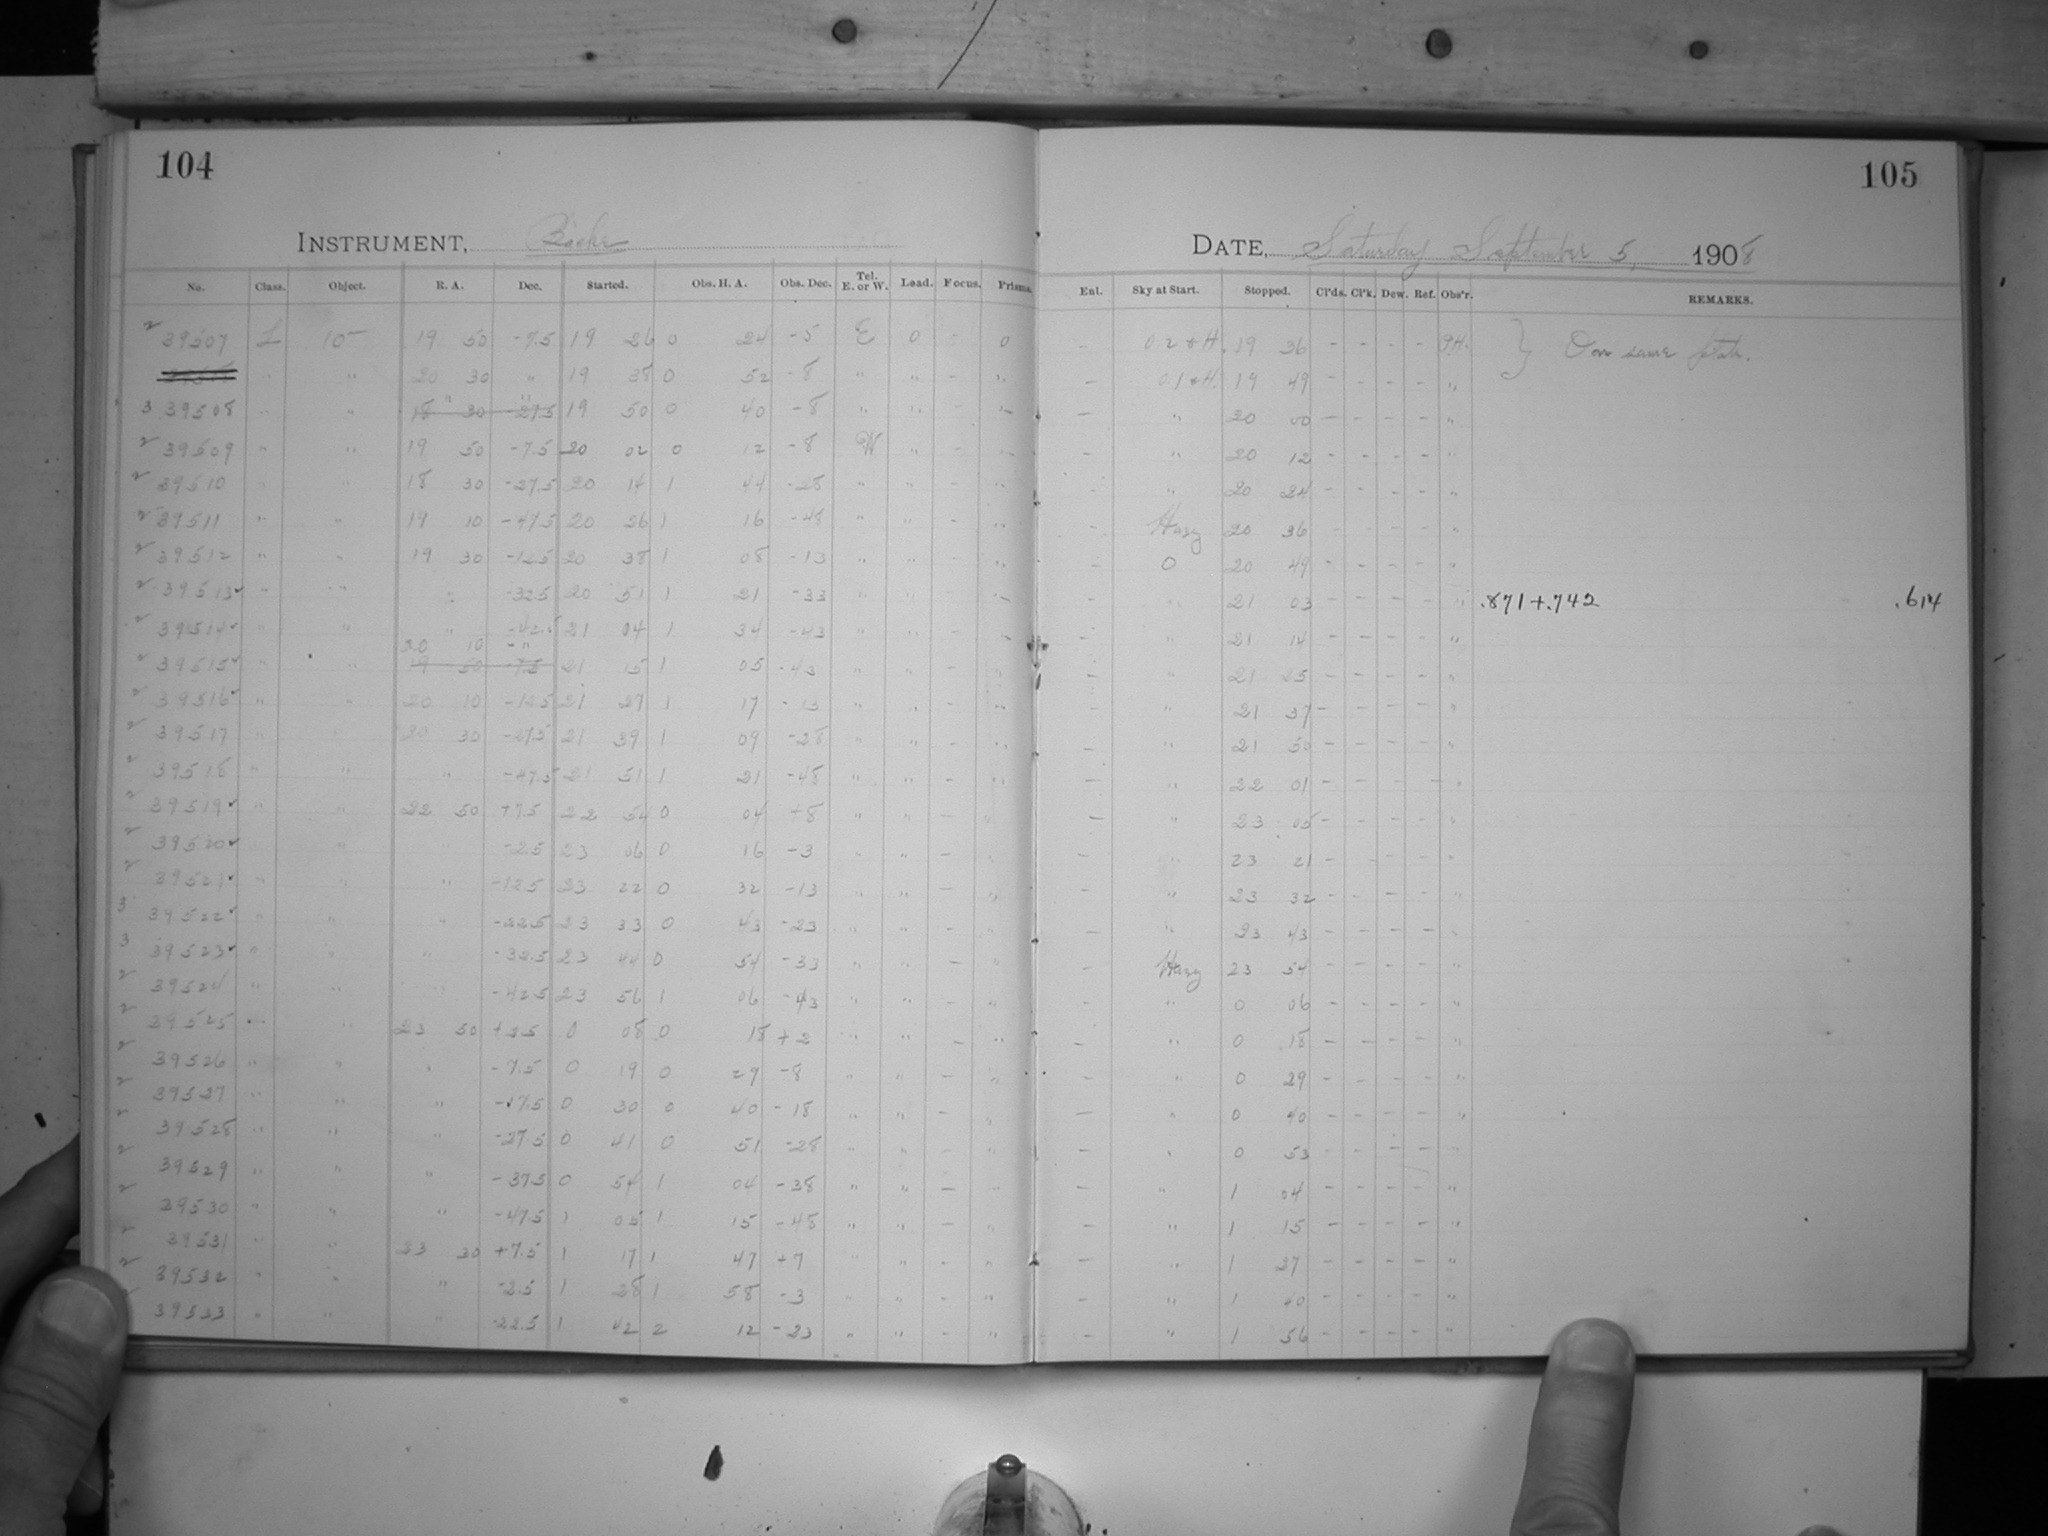 104
105
INSTRUMENT, Bache
DATE, Saturday September 5, 1908
No. Class. Object. R. A. Dec. Started. Obs. H. A. Obs. Dec. Tel. E. or W. Load. Focus. Prisms. Enl. Sky at Start. Stopped. Cl'ds. Cl'k. Dew. Ref. Obs'r. REMARKS.
2 39507 L 10- 19 50 -7.5 19 26 0 24 -5 E 0 - 0 - 19 36 - - - - } On same plate.
" " 20 30 " 19 38 0 52 -8 " " - " - 19 49 - - - - "
3 39508 " " 18 30 -27.5 19 50 0 40 -8 " " - " - " 20 00 - - - - "
2 39509 " " 19 50 -7.5 20 02 0 12 -8 W " - " - " 20 12 - - - - "
2 39510 " " 18 30 -27.5 20 14 1 44 -28 " " - " - " 20 24 - - - - "
2 39511 " " 19 10 -47.5 20 26 1 16 -48 " " - " - Hazy 20 36 - - - - "
2 39512 " " 19 30 -12.5 20 38 1 08 -13 " " - " - 0 20 49 - - - - "
2 39513 " " " -32.5 20 51 1 21 -33 " " - " - " 21 03 - - - - " .871+.742 .614
2 39514 " " " -42.5 21 04 1 34 -43 " " - " - " 21 14 - - - - "
20 10 - "
2 39515 " " 19 50 -7.5 21 15 1 05 -43 " " - " - " 21 25 - - - - "
2 39516 " " 20 10 -12.5 21 27 1 17 -13 " " - " - " 21 37 - - - - "
2 39517 " " 20 30 -27.5 21 39 1 09 -28 " " - " - " 21 50 - - - - "
2 39518 " " " -47.5 21 51 1 21 -48 " " - " - " 22 01 - - - - "
2 39519 " " 22 50 +7.5 22 54 0 04 +8 " " - " - " 23 05 - - - - "
2 39520 " " " -2.5 23 06 0 16 -3 " " - " - " 23 21 - - - - "
2 39521 " " " -12.5 23 22 0 32 -13 " " - " - " 23 32 - - - - "
3 39522 " " " -22.5 23 33 0 43 -23 " " - " - " 23 43 - - - - "
3 39523 " " " -32.5 23 44 0 54 -33 " " - " - Hazy 23 54 - - - - "
2 39524 " " " -42.5 23 56 1 06 -43 " " - " - " 0 06 - - - - "
2 39525 " " 23 50 +2.5 0 08 0 18 +2 " " - " - " 0 18 - - - - "
2 39526 " " " -7.5 0 19 0 29 -8 " " - " - " 0 29 - - - - "
2 39527 " " " -17.5 0 30 0 40 -18 " " - " - " 0 40 - - - - "
2 39528 " " " -27.5 0 41 0 51 -28 " " - " - " 0 53 - - - - "
2 39529 " " " -37.5 0 54 1 04 -38 " " - " - " 1 04 - - - - "
2 39530 " " " -47.5 1 05 1 15 -48 " " - " - " 1 15 - - - - "
2 39531 " " 23 30 +7.5 1 17 1 47 +7 " " - " - " 1 27 - - - - "
2 39532 " " " -2.5 1 28 1 58 -3 " " - " - " 1 40 - - - - "
39533 " " " -22.5 1 42 2 12 -23 " " - " - " 1 56 - - - - "